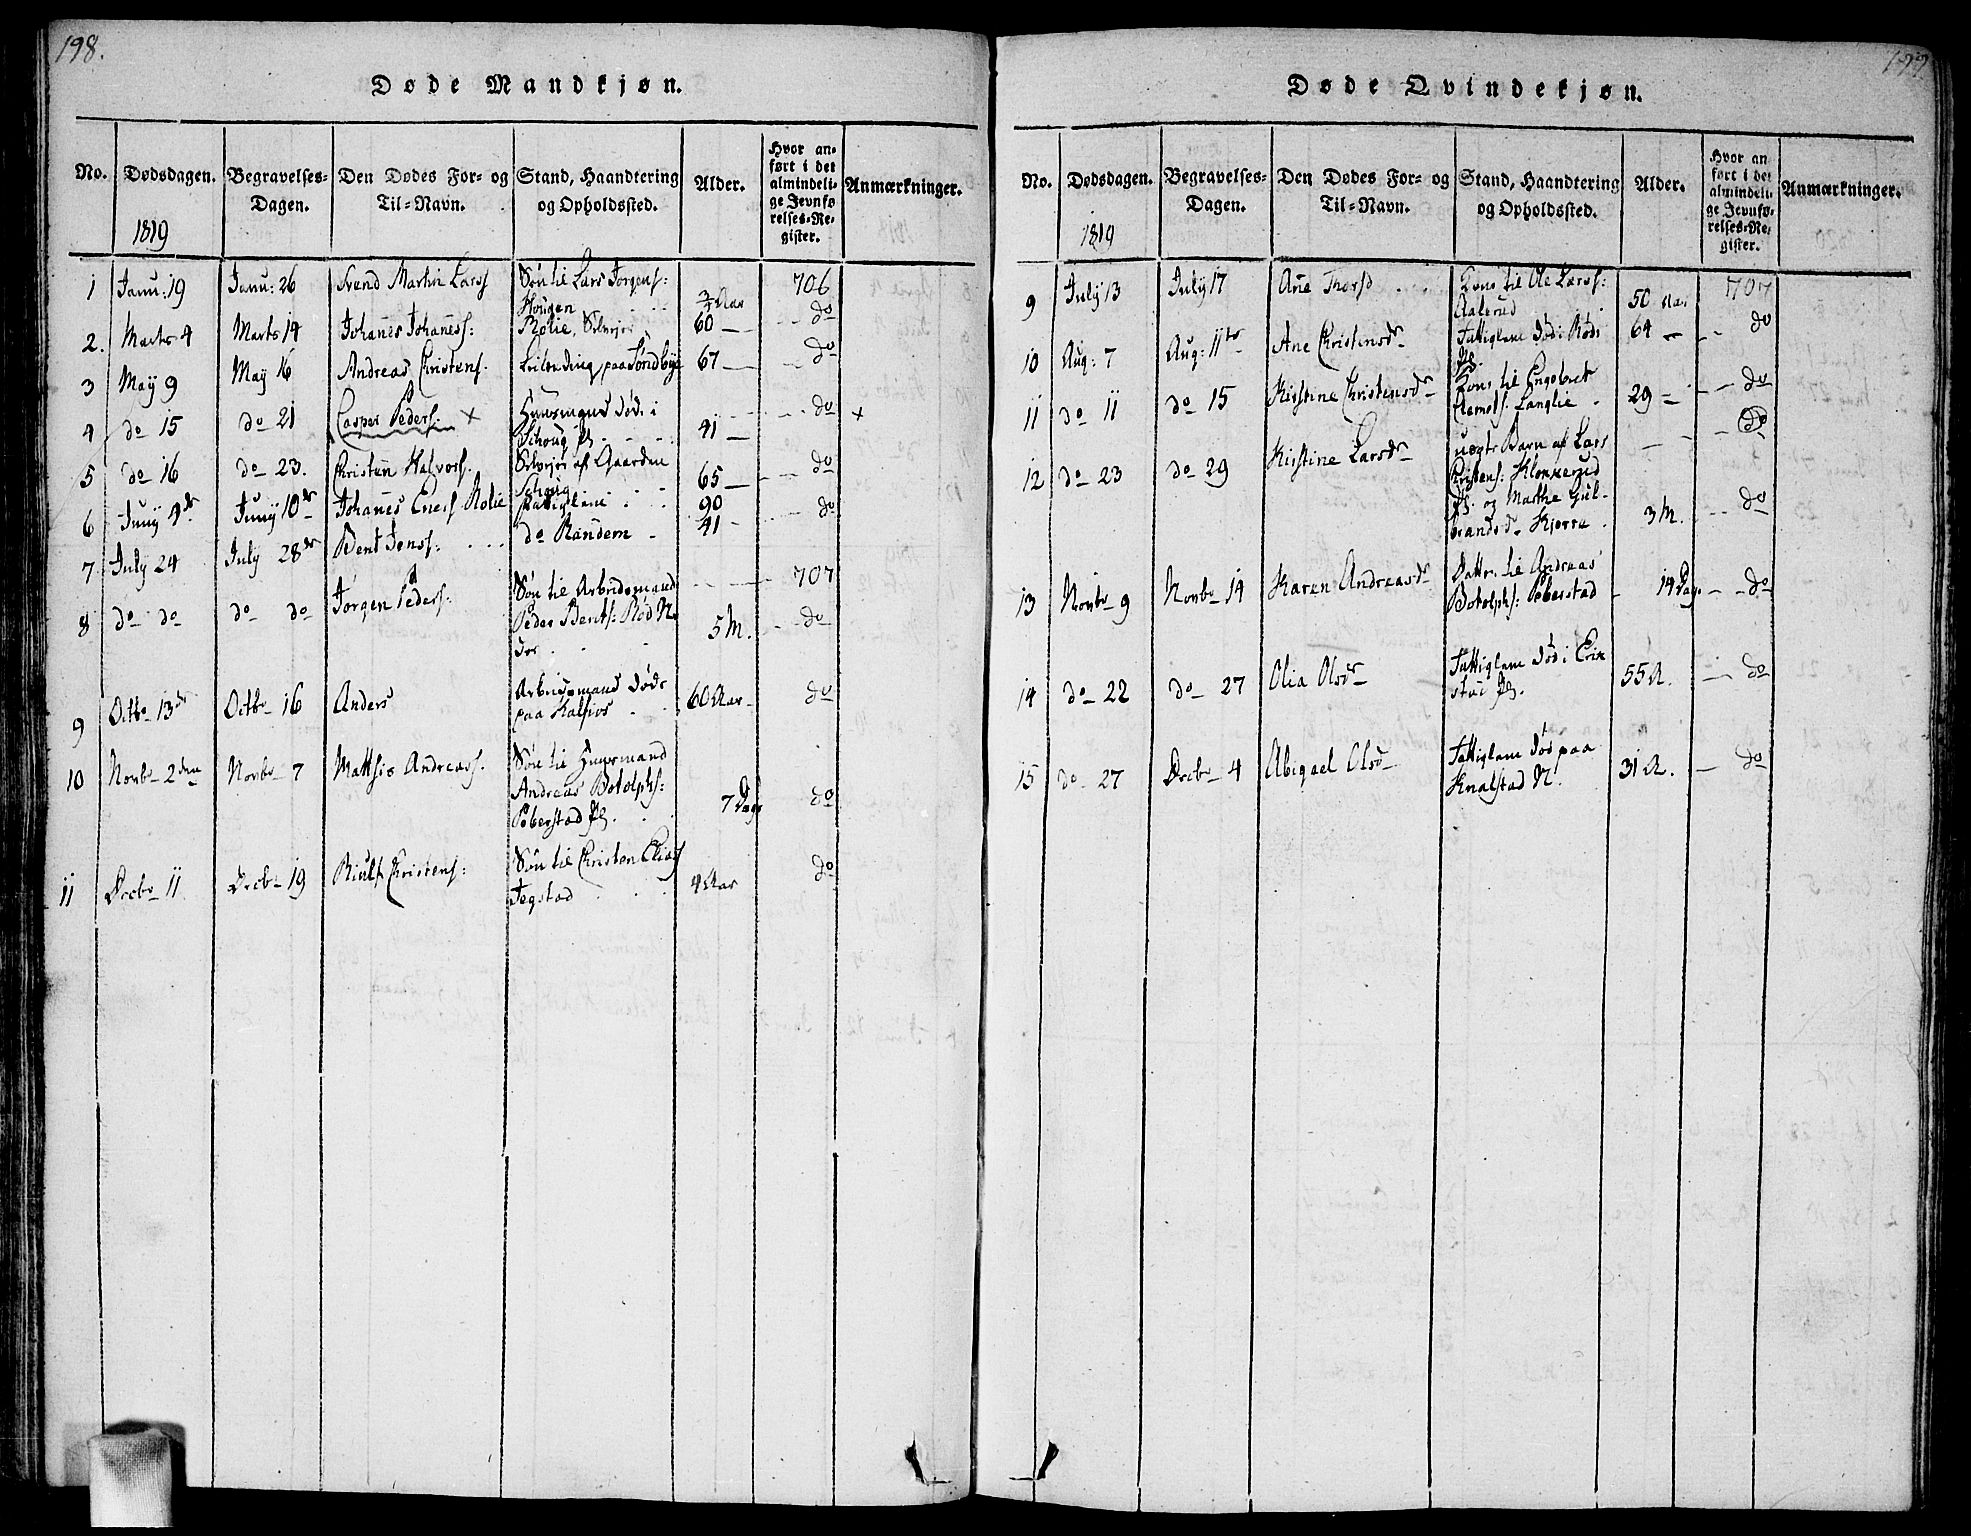 198.
Døde Mandkjøn.
No. Dødsdagen. Begravelses-Dagen. Den Dødes For- og Til-Navn. Stand, Haandtering og Opholdssted. Alder. Hvor anført i det almindelige Jevnførelses-Register. Anmærkninger.
1819
1 Janu: 19 Janu: 26 Svend Martin Larss Søn til Lars Jorgens: Hougen 3/4 Aar 706
2. Marts 4 Marts 14 Johanes Johaness: Rolie, Selvejer 60 — do
3 May 9 May 16 Andreas Christens. Leilending paa Søndbye 67 — do
4 do 15 do 21 Casper Peders: + Huusmand død i Schoug Pl. 41 — do +
5 do 16 do 23. Christen Halvors. Selvejer af Gaarden Schoug 65 — do
6 Juny 4de Juny 10de Johanes Eners Rolie Fattiglem 90 do
7 July 24 July 28de Bent Jens: do Randem 41 - 707
8 do do do do Jörgen Peders: Søn til Arbeidsmand Peder Bents: Rød N. 5 M. do
9 Octbr 13de Octbr 16 Anders Arbeidsmand død paa 60 Aar do
10 Novbr 2den Novbr 7 Matthis Andreass. Søn til Huusmand Andreas Botolphs: Pøberstad Pl. 7 Dage do
11 Decbr 11 Decbr 19 Christens: Søn til Christen Elias Tegstad 4 Aar do
199
Døde Qvindekjøn.
No. Dødsdagen. Begravelses-Dagen. Den Dødes For- og Til-Navn. Stand, Haandtering og Opholdssted. Alder. Hvor anført i det almindelige Jevnførelses-Register. Anmærkninger.
1819
9 July 13 July 17 Ane Thorsd Kone til Ole Larss: Aalerud 50 Aar 707
10 Aug: 7 Aug: 11te Ane Christensdr Fattiglem død i Rød Pl. 64 — do
11 do 11 do 15 Kirstine Christensdr Kone til Engebret Langlie 29 — do
12 do 23 do 29 Kirstine Larsdr uegte Barn af Lars Cristens: Klokkerud Pl. og Marthe Gulbrandsd. Kjerre 3 M. do
13 Novbr 9 Novbr 14 Karen Andreasdr Datter til Andreas Botolphs: Pøberstad 14 Dage do
14 do 22 do 27 Olia Olsdr Fattiglem død i Erikstue Pl. 55 A. do
15 do 27 Decbr 4 Abigael Olsdr Fattiglem død paa Knalstad N. 31 A. do